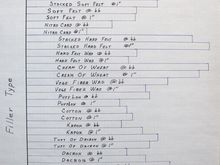 Stacked Soft Felt @ 1"
Soft Felt @ ½
Soft Felt @ 1"
Nitro Card @ ½
Nitro Card @ 1"
Stacked Hard Felt @ ½
Stacked Hard Felt @ 1"
Hard Felt Wad @ ½
Hard Felt Wad @ 1"
Cream Of Wheat @ ½
Cream Of Wheat @ 1"
Vege Fiber Wad @ ½
Vege Fiber Wad @ 1"
Puff Lon @ ½
Puff Lon @ 1"
Cotton @ ½
Cotton @ 1"
Kapok @ ½
Kapok @ 1"
Tuft Of Dacron @ ½
Tuft Of Dacron @ 1"
Dacron @ ½
Dacron @ 1"
Filler Type